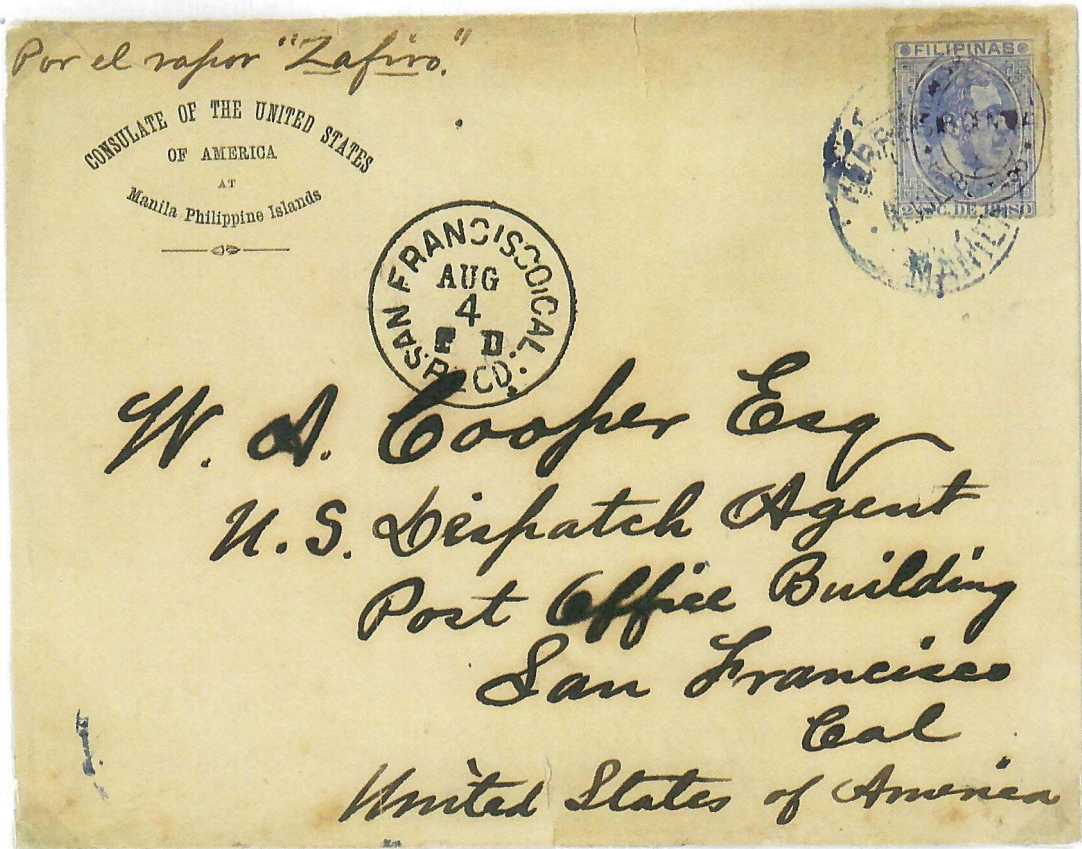 Por el vapor "Zafiro."
CONSULATE OF THE UNITED STATES
OF AMERICA
AT
Manila Philippine Islands
FILIPINAS
C. DE PESO
MANILA
SAN FRANCISCO, CAL.
AUG
4
REC'D.
W. A. Cooper Esq
U.S. Dispatch Agent
Post Office Building
San Francisco
Cal
United States of America